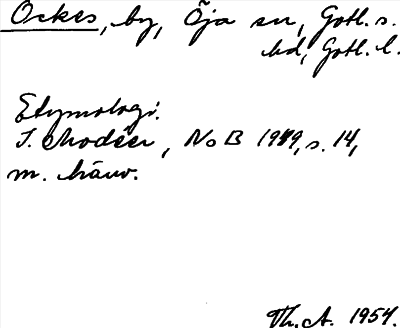 Ockes, by, Öja sn, Gotl. s.
hd, Gotl. l.
Etymologi.
I. Modéer, NoB 1949, s. 14,
m. hänv.
Th. A. 1954.